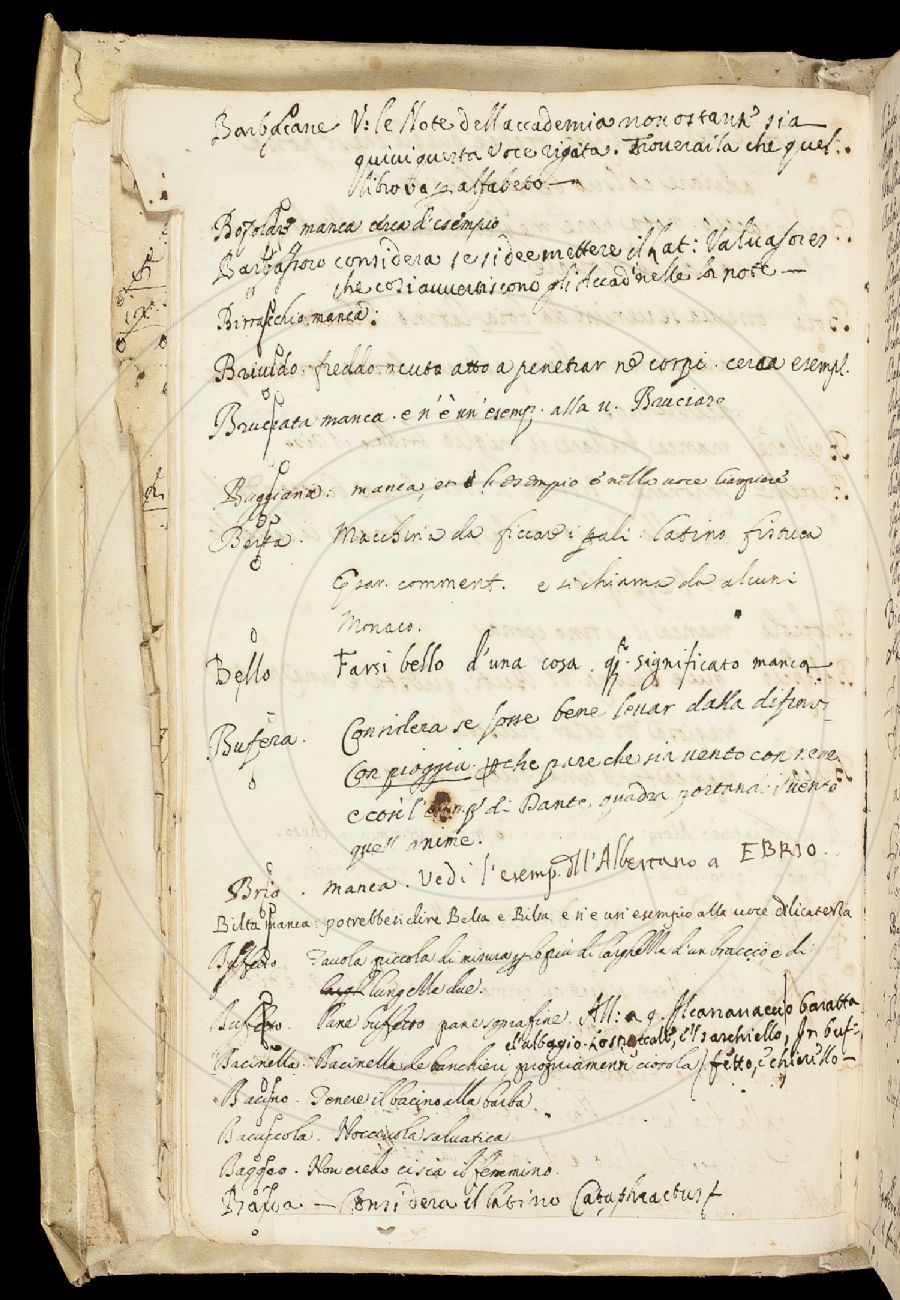 Barbacane V: le Note dell accademia non ostante sia
quivi questa voce rigata. Troveraila che quel
libro va p alfabeto —
manca cerca d'esempio
Barbassoro considera se si dee mettere il Lat: Valvasores
che così avvertiscono gli Accad nelle lor note —
Birracchio manca:
Brivido. freddo acuto atto a penetrar ne corpi. cerca esempl.
Bruciata manca. e n'è un'esemp. alla v. Bruciare
Baggiana: manca, et l'esempio è nella voce
Berta. Macchina da ficcare i pali. latino fistuca
Cesar. comment. e si chiama da alcuni
Monaco.
Bello Farsi bello d'una cosa. q. significato manca
Bufera. Considera se fosse bene levar dalla difiniz
Con pioggia. pche pare che sia vento con neve
e così l' di Dante, quadra portana i vento
quell anime.
Brio. manca. Vedi l'esemp. dll'Albertano a EBRIO.
Bilta manca: potrebbesi dire Belta e Bilta e n'e un'esempio alla voce dilicatezza
Buffetto. Tavola piccola di misura p lo più di larghezza d'un braccio e di
lunghezza due.
Buffetto. Pane buffetto pane sopraffine. All: a q. Al baratta
e'l'alloggio. , e'l sarchiello, In buf-
Bacinella: Bacinella de banchieri propriamente ciotola fetto, e chivello —
Bacino. Tenere il bacino alla barba
Bacuccola. Nocciuola salvatica
Baggeo. Non credo ci sia il femmino.
Barda — Considera il latino Cataphractus